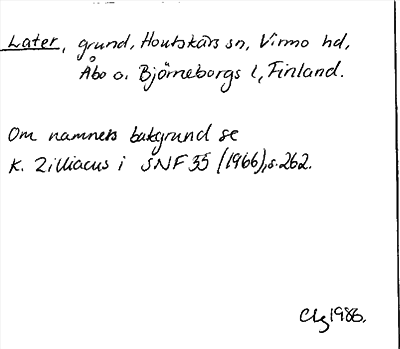 Later, grund, Houtskärs sn, Virmo hd,
Åbo o. Björneborgs l, Finland.
Om namnets bakgrund se
K. Zilliacus i SNF 55 (1966), s. 262.
1986.